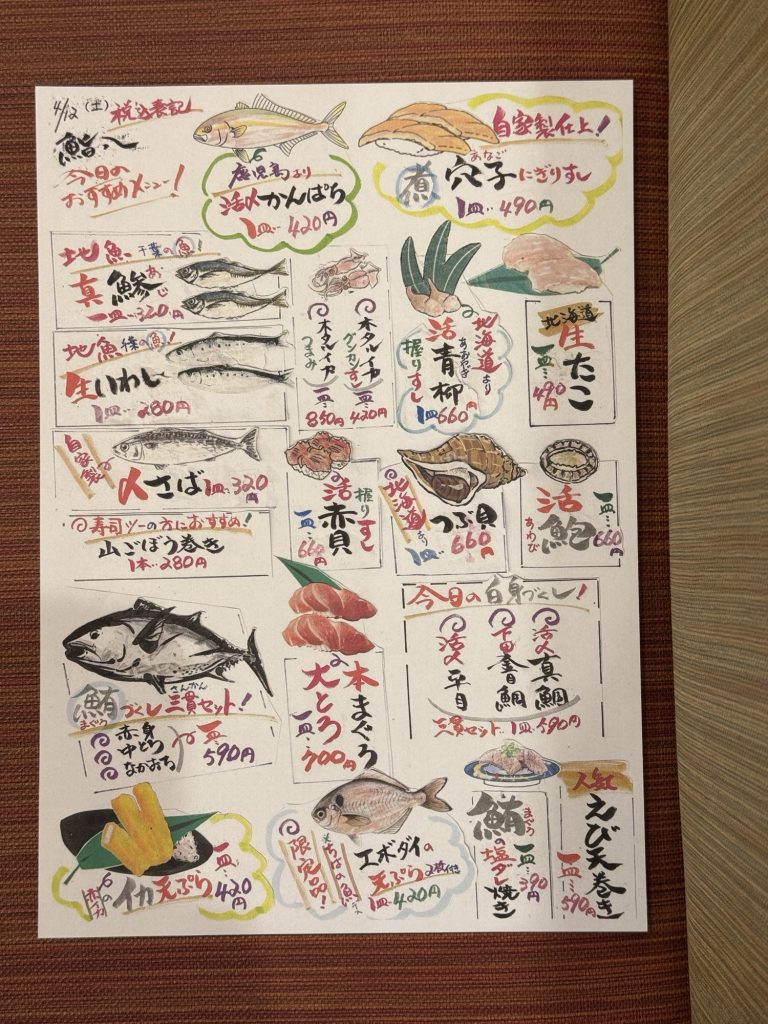 4/12(土) 税込表記
鮨八
今日の
おすすめメニュー!
鹿児島より
活〆かんぱち
1皿‥420円
自家製仕上!
煮 穴子 にぎりずし
あなご
1皿‥490円
地魚 千葉の魚!
真鯵 あじ
一皿‥320円
地魚 の魚!
生いわし
1皿‥280円
自家製
〆さば 1皿‥320円
◎寿司ツーの方におすすめ!
山ごぼう巻き
1本‥280円
ホタルイカ
グンカンずし
一皿‥420円
ホタルイカ
つまみ
850円
北海道より
活青柳
あおやぎ
握りずし
1皿660円
北海道
生たこ
一皿‥490円
握りずし
活赤貝
一皿‥660円
北海道より
つぶ貝
1皿 660円
活鮑
あわび
一皿‥660円
鮪づくし三貫セット!
まぐろ さんかん
赤身
中とろ
なかおち
一皿
590円
本まぐろ
大とろ
一皿‥700円
今日の白身づくし!
活〆真鯛
下田金目鯛
活〆平目
三貫セット‥1皿‥590円
イカ天ぷら
一皿‥420円
限定品!
ちばの魚
エボダイの
天ぷら2枚付き
1皿‥420円
鮪の塩ダレ焼き
まぐろ
一皿‥390円
人気
えび天巻き
一皿‥590円